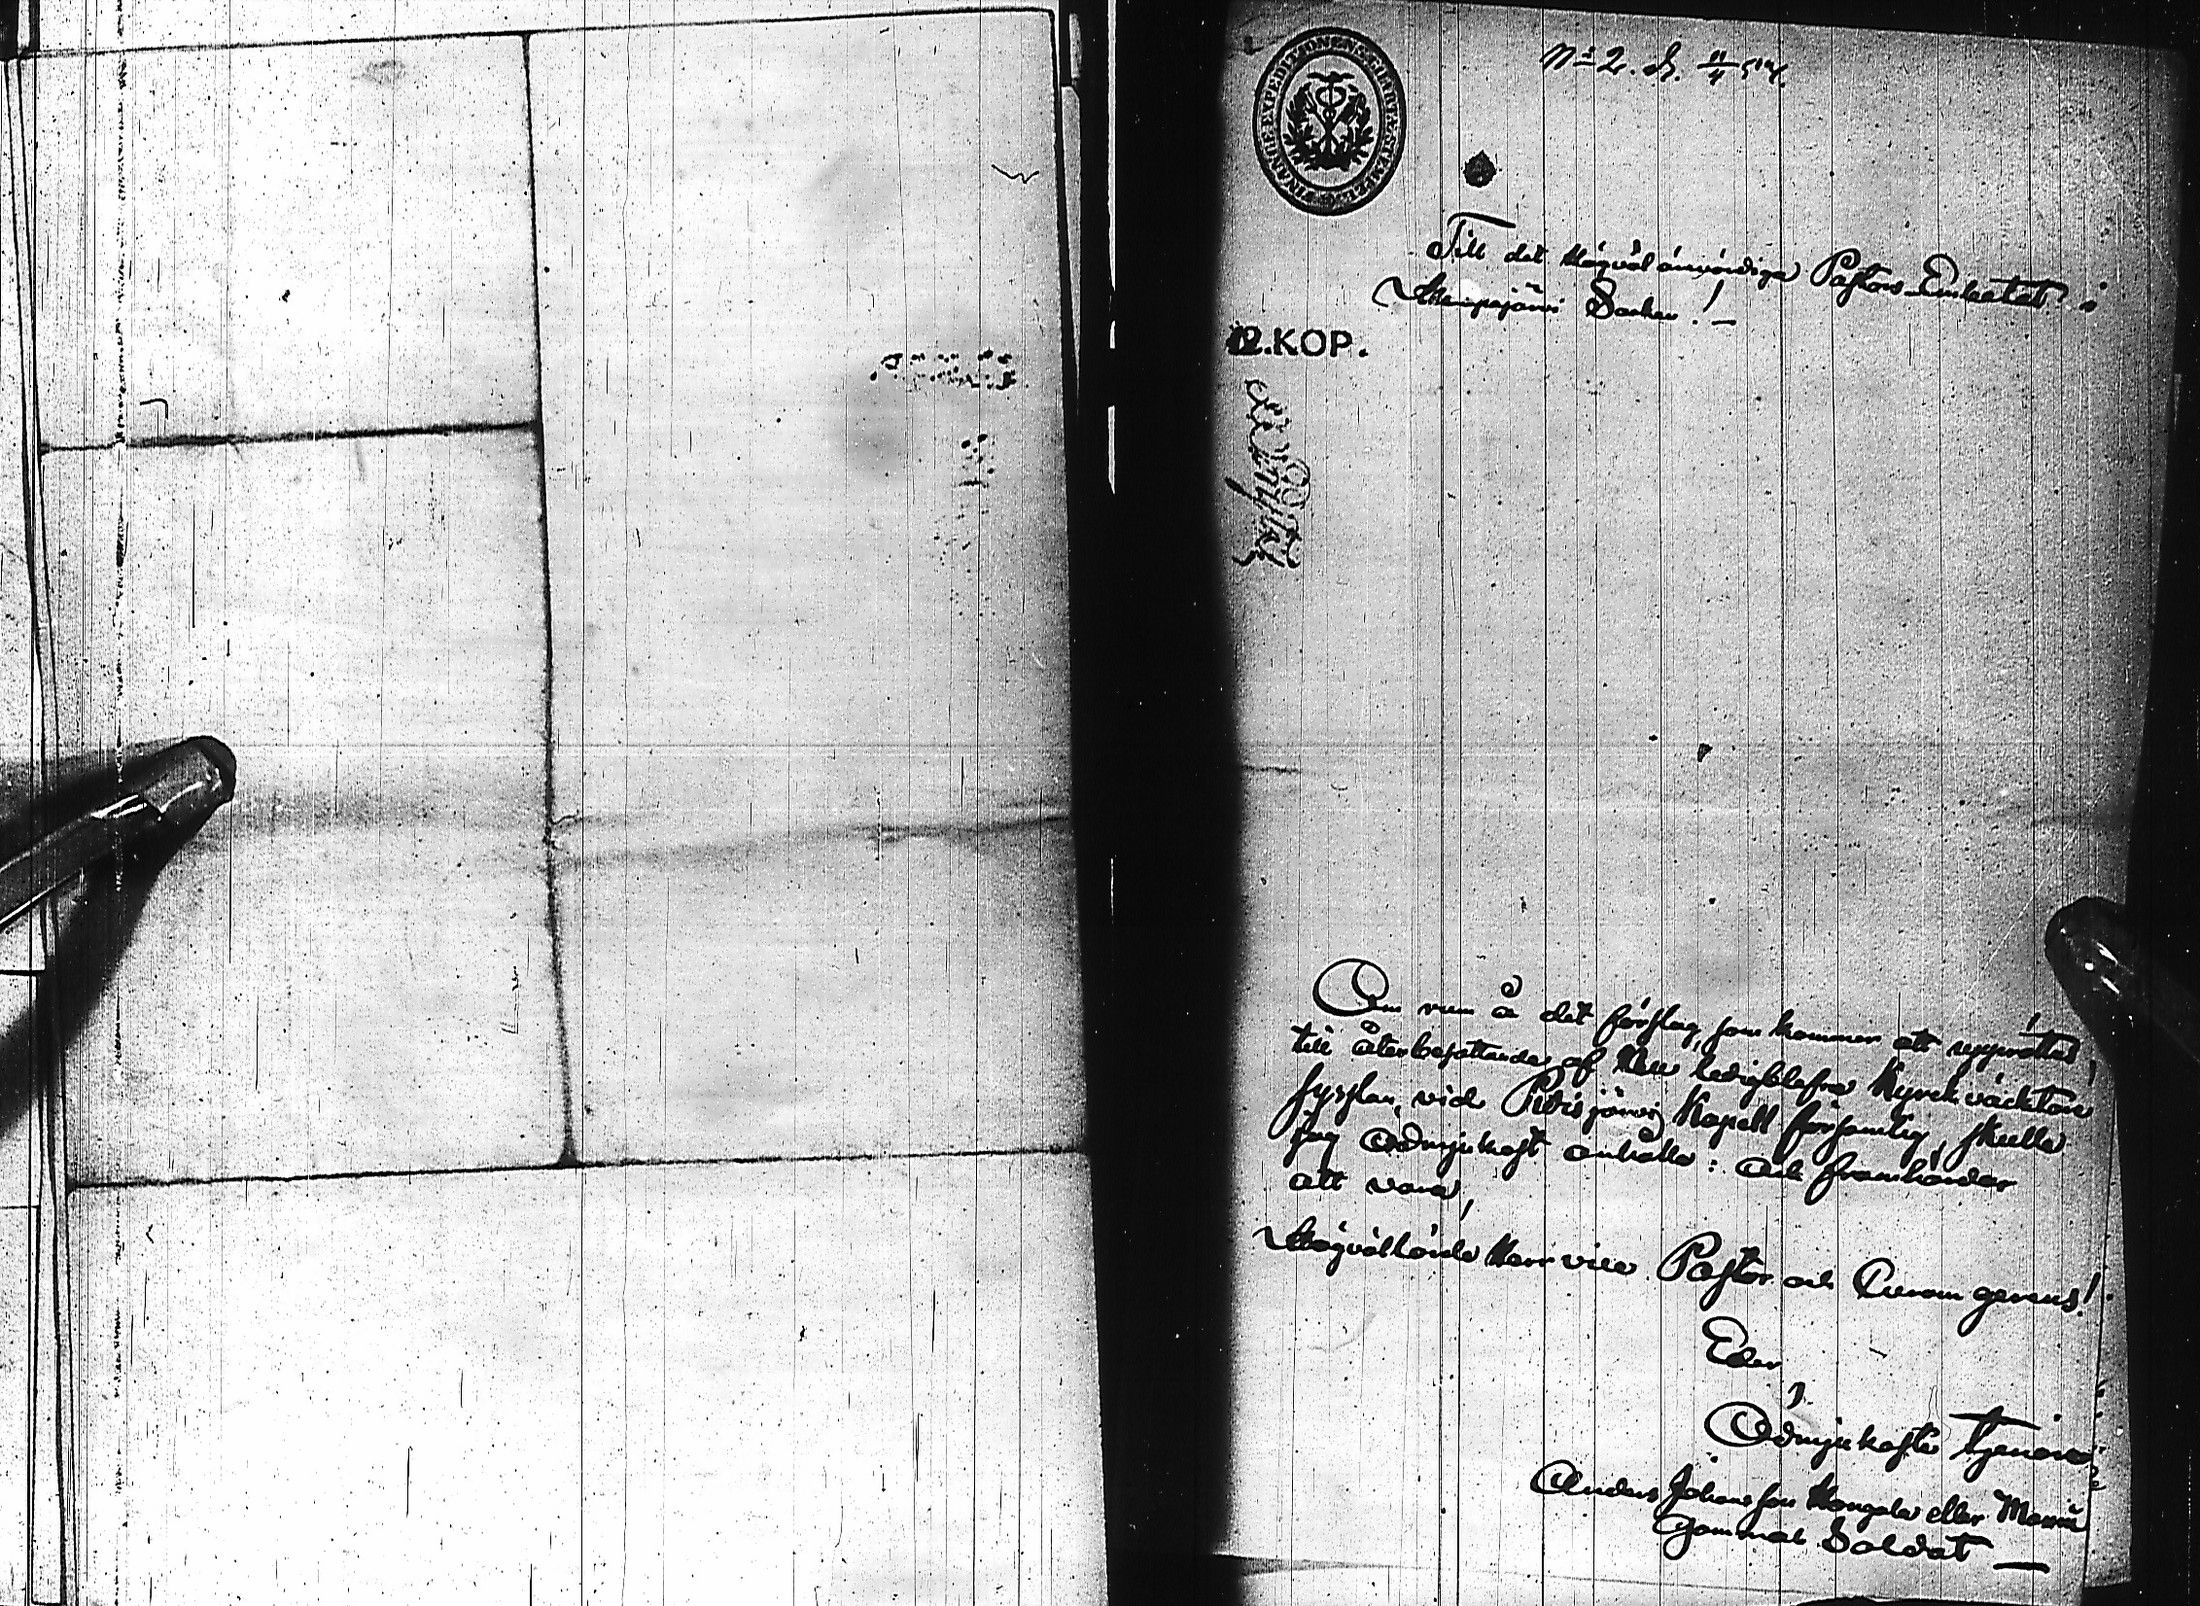 FINANCE EXPEDITIONENS CHARTÆ STÄMPEL
N:o 2.
Till det Högvälärevördiga Pastors Embetet i
Kempajärvi Socken! —
12. KOP.
Om rum å det förslag, som kommer att upprättas,
till återbesättande af den ledigblefne Kyrkväcktare
sysslan, vid Pidisjärvi Kapell församling, skulle
jag ödmjukast anhålla: och framhärdar
att vara,
Högvällärde Herr vice Pastor och Curam gerens!
Eder
Ödmjukaste tjenare
Anders Johansson Kangala eller
Gammal Soldat —